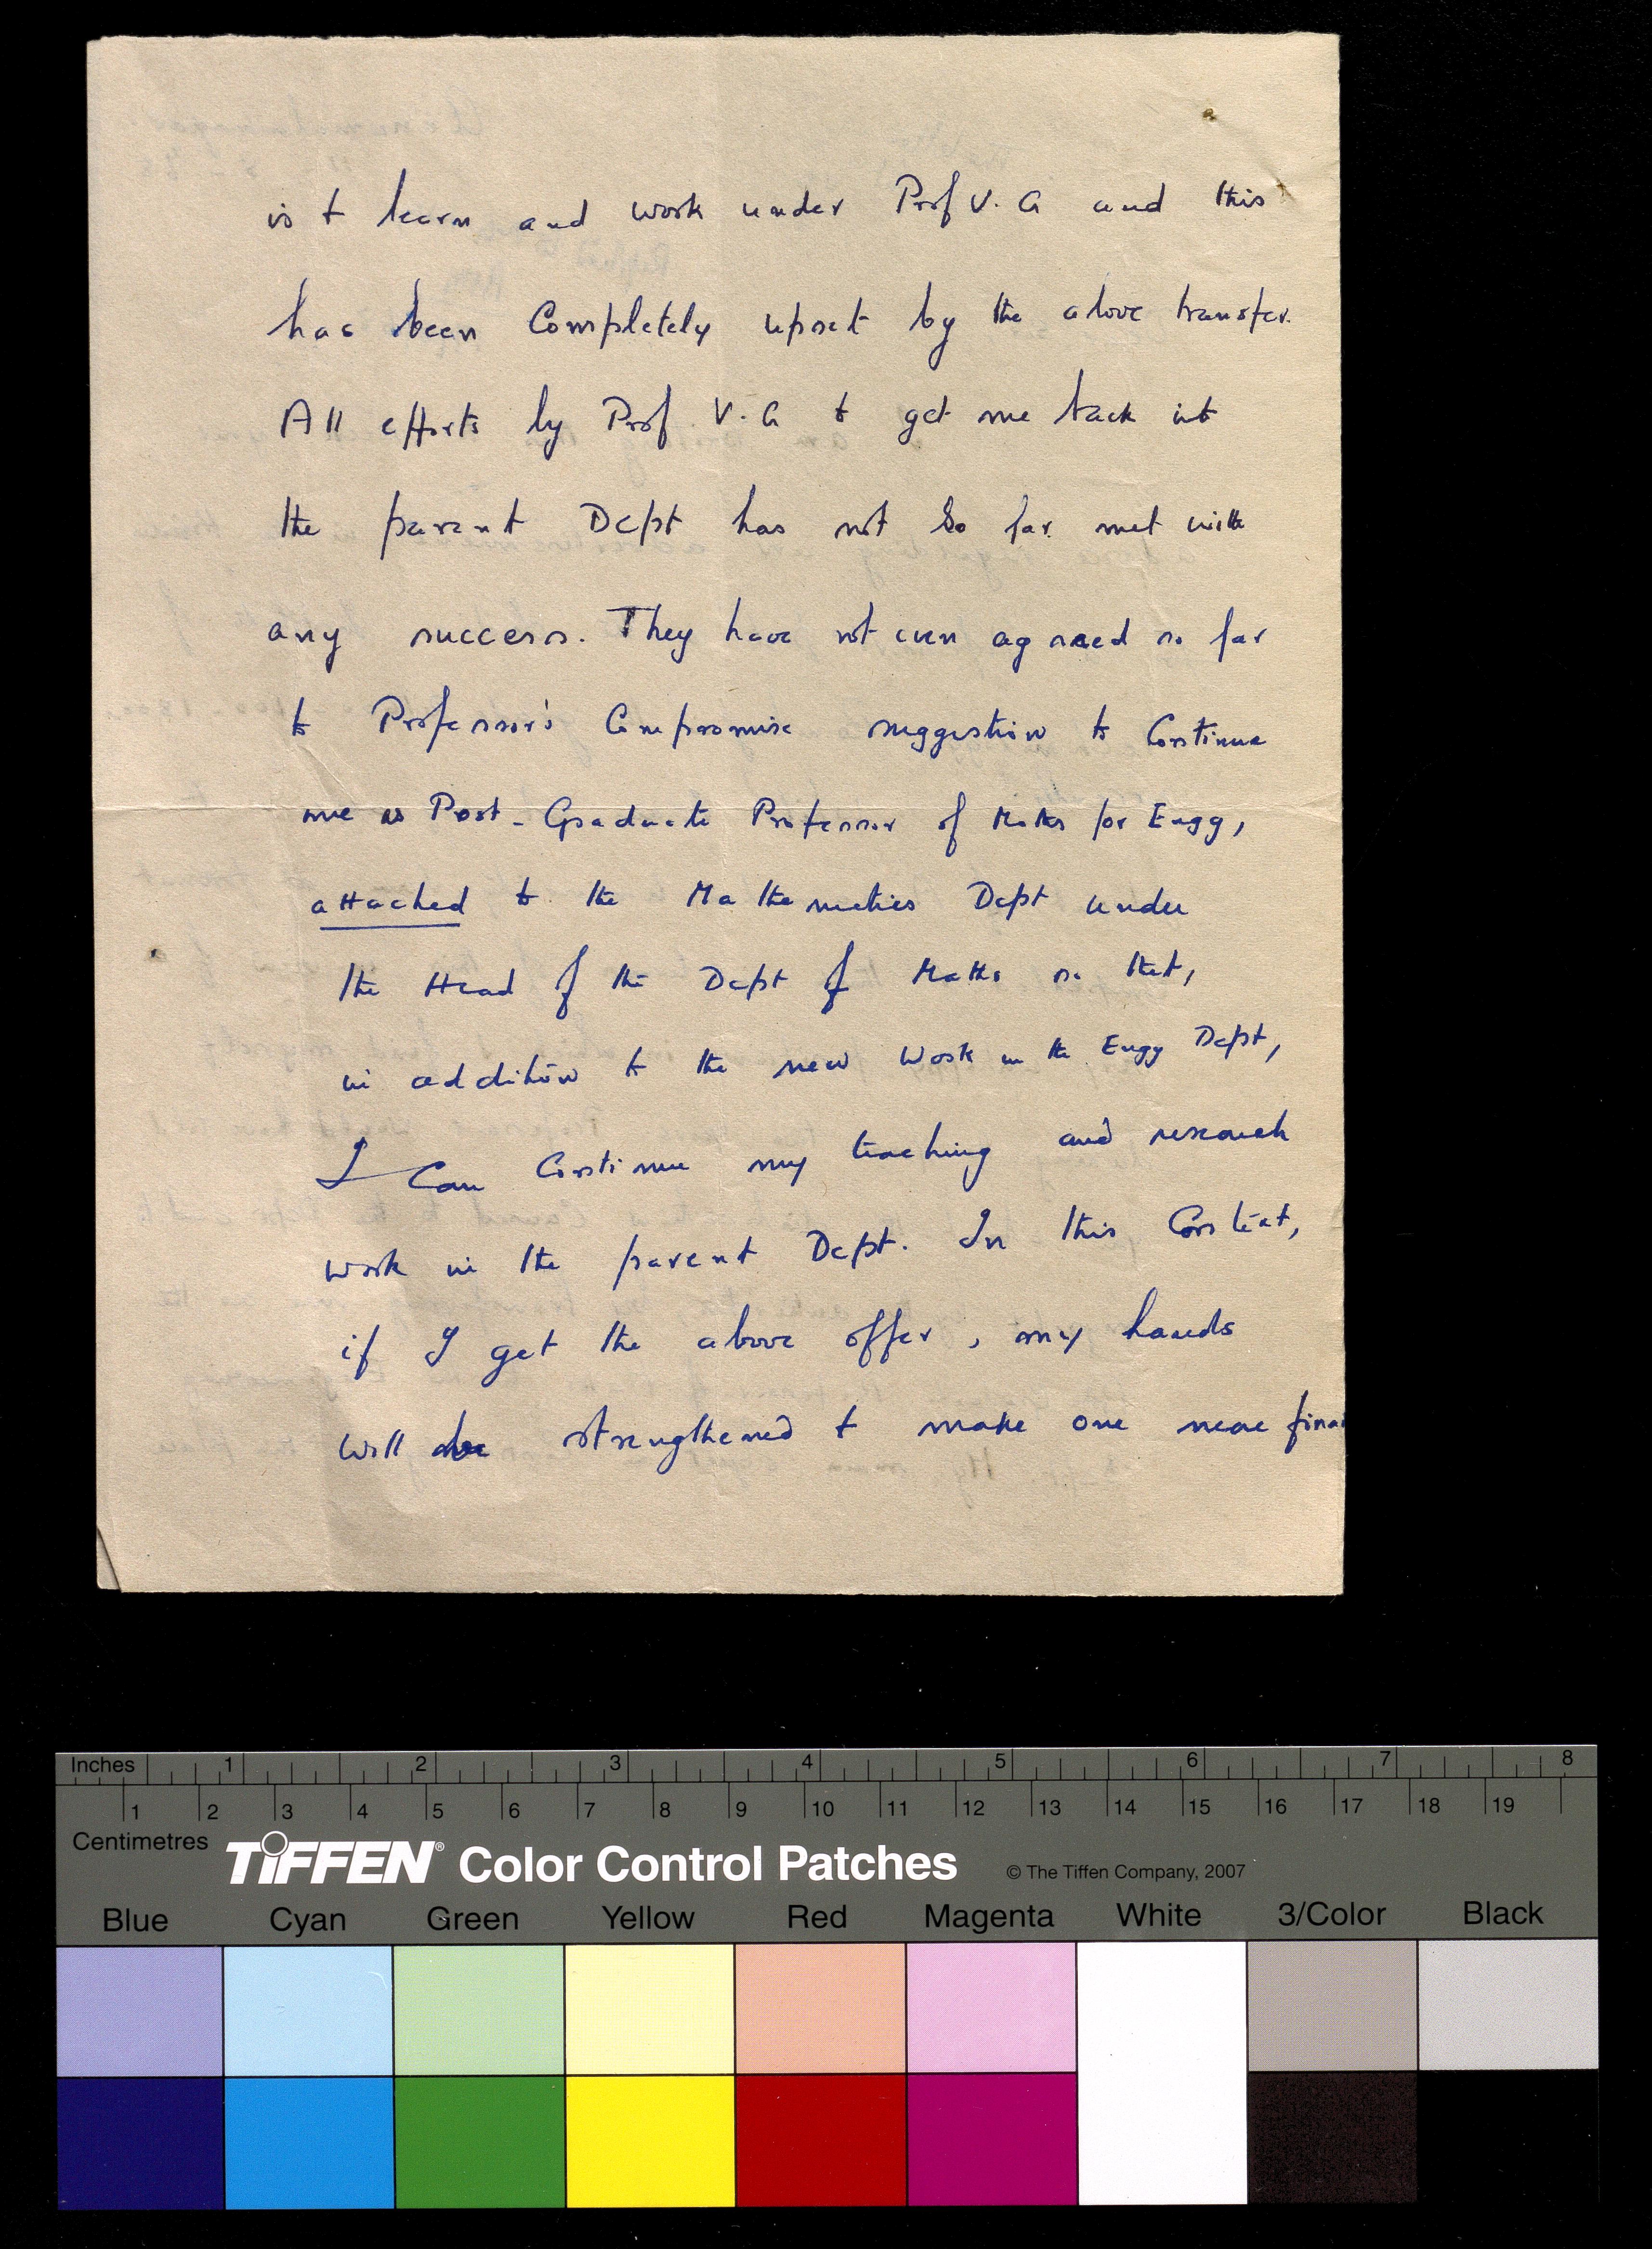 is to learn and work under Prof V. G and this
has been Completely upset by the above transfer.
All efforts by Prof V. G to get me back into
the parent Dept has not so far met with
any success. They have not even agreed so far
to Professor's Compromise suggestion to Continue
me as Post-Graduate Professor of Maths for Engg,
attached to the Mathematics Dept under
the Head of the Dept of Maths so that,
in addition to the new work in the Engg Dept,
I Can Continue my teaching and research
work in the parent Dept. In this Context,
if I get the above offer, my hands
will be strengthened to make one more final
Inches 1 2 3 4 5 6 7 8
1 2 3 4 5 6 7 8 9 10 11 12 13 14 15 16 17 18 19
Centimetres
TIFFEN® Color Control Patches © The Tiffen Company, 2007
Blue Cyan Green Yellow Red Magenta White 3/Color Black